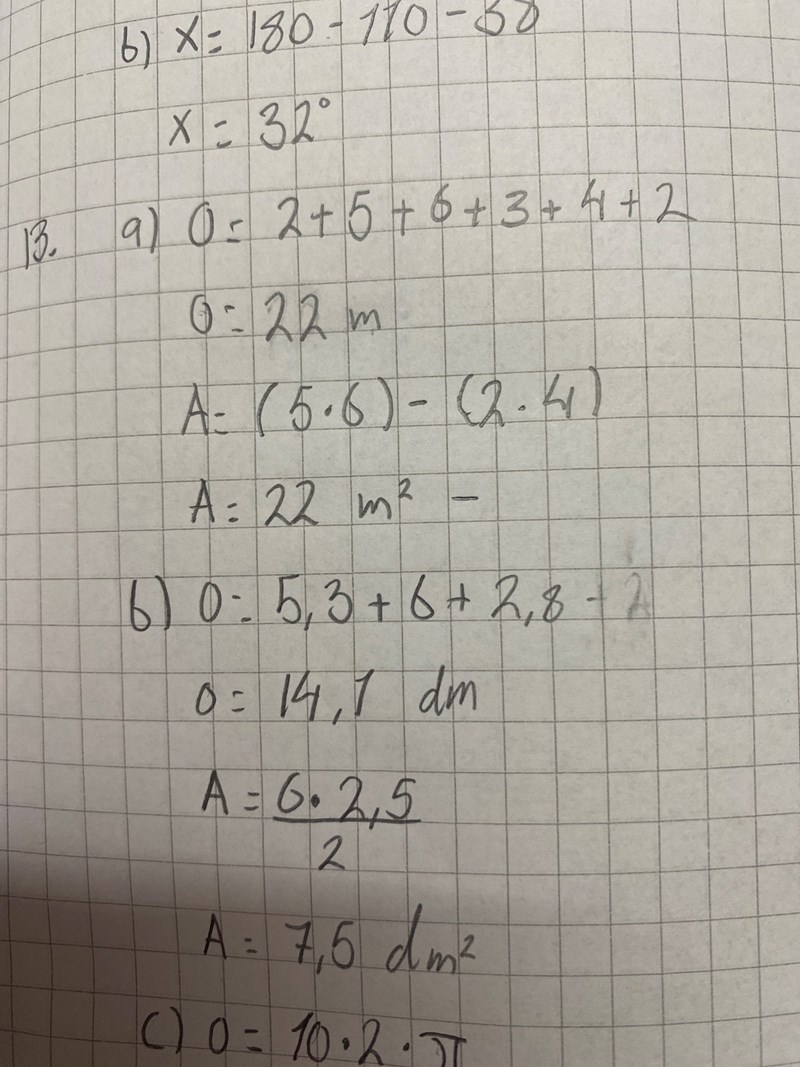 b) x = 180 - 110 - 38
x = 32°
13. a) O = 2 + 5 + 6 + 3 + 4 + 2
O = 22 m
A = (5 · 6) - (2 · 4)
A = 22 m² -
b) O = 5,3 + 6 + 2,8
O = 14,1 dm
A = 6 · 2,5
2
A = 7,5 dm²
c) O = 10 · 2 · π